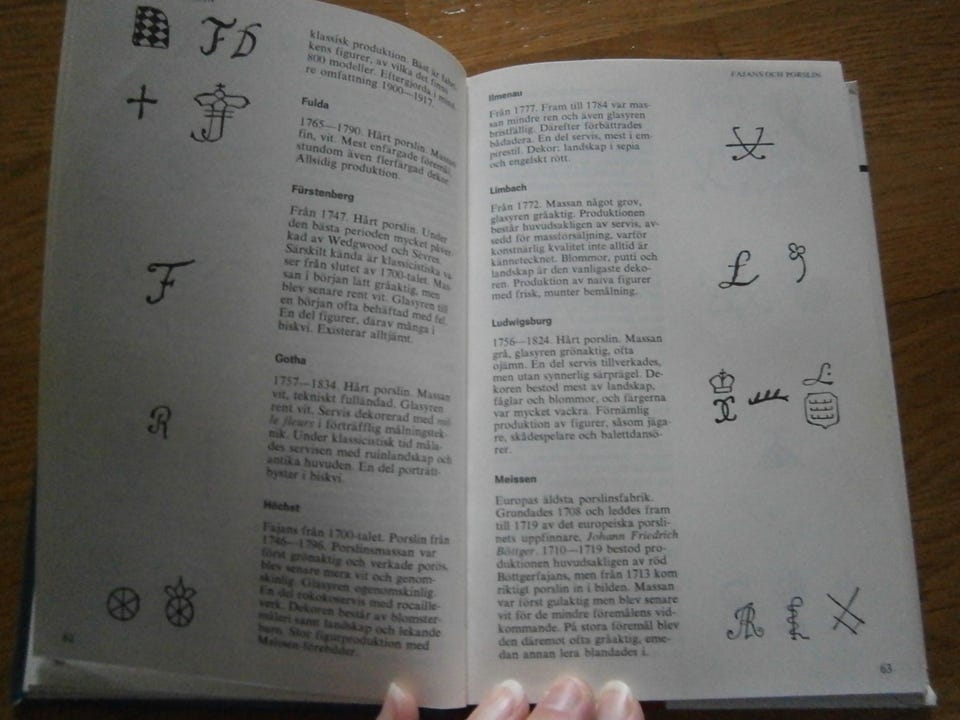 klassisk produktion. Bäst är fabri-
kens figurer, av vilka det finns
800 modeller. Eftergjorda i
re omfattning 1900—1917.
Fulda
1765—1790. Hårt porslin. Massan
fin, vit. Mest enfärgade föremål,
stundom även flerfärgad dekor.
Allsidig produktion.
Fürstenberg
Från 1747. Hårt porslin. Under
den bästa perioden mycket påver-
kad av Wedgwood och Sèvres.
Särskilt kända är klassicistiska va-
ser från slutet av 1700-talet. Mas-
san i början lätt gråaktig, men
blev senare rent vit. Glasyren till
en början ofta behäftad med fel.
En del figurer, därav många i
biskvi. Existerar alltjämt.
Gotha
1757—1834. Hårt porslin. Massan
vit, tekniskt fulländad. Glasyren
rent vit. Servis dekorerad med mil-
le fleurs i förträfflig målningstek-
nik. Under klassicistisk tid måla-
des servisen med ruinlandskap och
antika huvuden. En del porträtt-
byster i biskvi.
Höchst
Fajans från 1700-talet. Porslin från
1746—1796. Porslinsmassan var
först grönaktig och verkade porös,
blev senare mera vit och genom-
skinlig. Glasyren ogenomskinlig.
En del rokokoservis med rocaille-
verk. Dekoren består av blomster-
måleri samt landskap och lekande
barn. Stor figurproduktion med
Meissen-förebilder.
62
F D
F
R
FAJANS OCH PORSLIN
Ilmenau
Från 1777. Fram till 1784 var mas-
san mindre ren och även glasyren
bristfällig. Därefter förbättrades
bådadera. En del servis, mest i em-
pirestil. Dekor: landskap i sepia
och engelskt rött.
Limbach
Från 1772. Massan något grov,
glasyren gråaktig. Produktionen
består huvudsakligen av servis, av-
sedd för massförsäljning, varför
konstnärlig kvalitet inte alltid är
kännetecknet. Blommor, putti och
landskap är den vanligaste deko-
ren. Produktion av naiva figurer
med frisk, munter bemålning.
Ludwigsburg
1756—1824. Hårt porslin. Massan
grå, glasyren grönaktig, ofta
ojämn. En del servis tillverkades,
men utan synnerlig särprägel. De-
koren bestod mest av landskap,
fåglar och blommor, och färgerna
var mycket vackra. Förnämlig
produktion av figurer, såsom jäga-
re, skådespelare och balettdansö-
rer.
Meissen
Europas äldsta porslinsfabrik.
Grundades 1708 och leddes fram
till 1719 av det europeiska porsli-
nets uppfinnare, Johann Friedrich
Böttger. 1710—1719 bestod pro-
duktionen huvudsakligen av röd
Böttgerfajans, men från 1713 kom
riktigt porslin in i bilden. Massan
var först gulaktig men blev senare
vit för de mindre föremålens vid-
kommande. På stora föremål blev
den däremot ofta gråaktig, eme-
dan annan lera blandades i.
L
L
AR
63